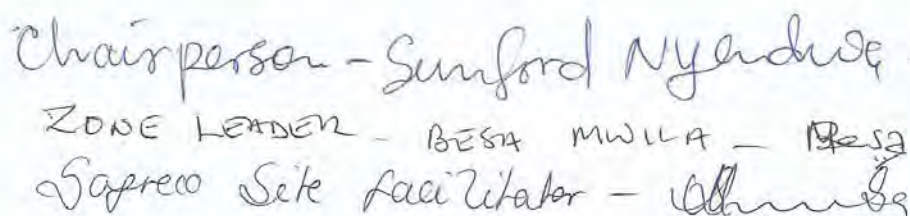 Chairperson - Sunford Nyendwe
ZONE LEADER - BESA MWILA - Besa
Site facilitator -